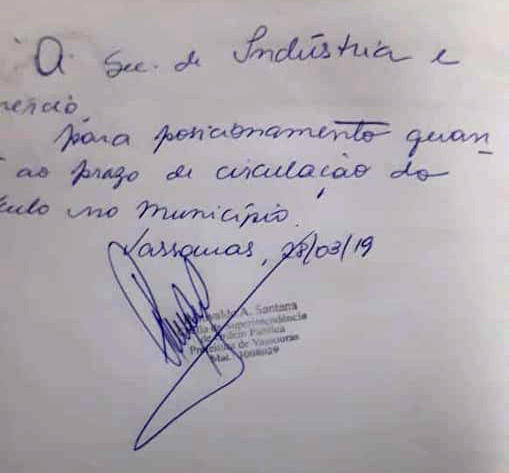 À Sec. de Indústria e
mércio
para posicionamento quan
ao prazo de circulação do
culo no município.
Vassouras, 28/03/19
A. Santana
de Superintendência
de Ordem Pública
Prefeitura de Vassouras
Mat.